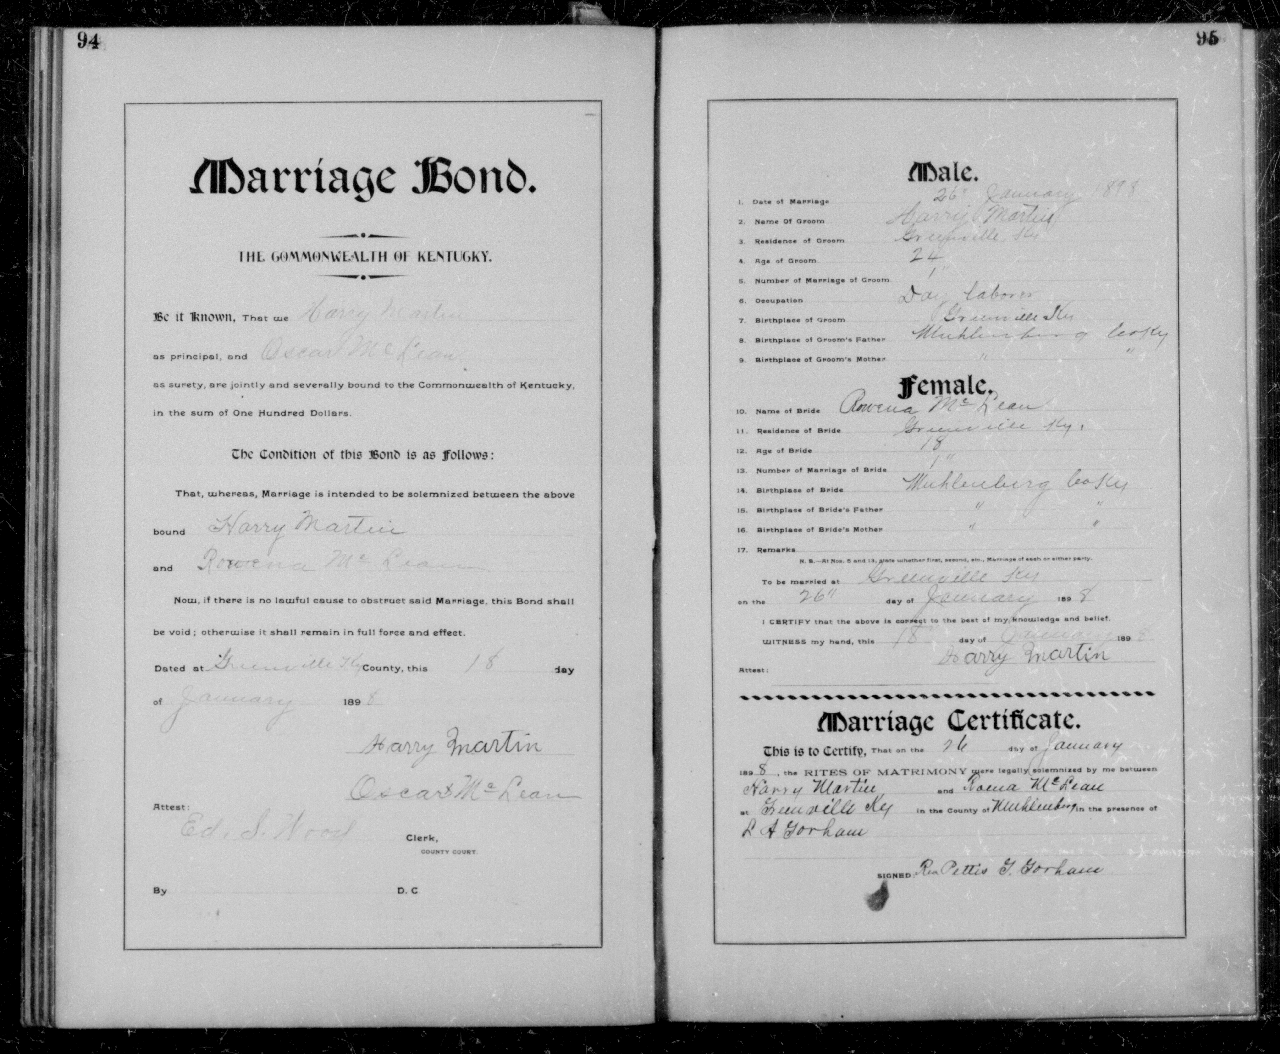 94
Marriage Bond.
THE COMMONWEALTH OF KENTUCKY.
Be it Known, That we Harry Martin
as principal, and Oscar Mc Lean
as surety, are jointly and severally bound to the Commonwealth of Kentucky,
in the sum of One Hundred Dollars.
The Condition of this Bond is as Follows:
That, whereas, Marriage is intended to be solemnized between the above
bound Harry Martin
and Rowena Mc Lean
Now, if there is no lawful cause to obstruct said Marriage, this Bond shall
be void; otherwise it shall remain in full force and effect.
Dated at Greenville Ky County, this 18 day
of January 1898
Harry Martin
Oscar Mc Lean
Attest:
Ed. S. Wood
Clerk,
COUNTY COURT.
By D. C
95
Male.
1. Date of Marriage 26" January 1898
2. Name Of Groom Harry Martin
3. Residence of Groom Greenville Ky
4. Age of Groom 24
5. Number of Marriage of Groom 1"
6. Occupation Day laborer
7. Birthplace of Groom Greenville Ky
8. Birthplace of Groom's Father Muhlenburg Co Ky
9. Birthplace of Groom's Mother " "
Female.
10. Name of Bride Rowena Mc Lean
11. Residence of Bride Greenville Ky.
12. Age of Bride 18
13. Number of Marriage of Bride 1"
14. Birthplace of Bride Muhlenburg Co Ky
15. Birthplace of Bride's Father " "
16. Birthplace of Bride's Mother " "
17. Remarks
N. B.—At Nos. 5 and 13, state whether first, second, etc., Marriage of each or either party.
To be married at Greenville Ky
on the 26" day of January 1898
I CERTIFY that the above is correct to the best of my knowledge and belief.
WITNESS my hand, this 18 day of January 1898
Harry Martin
Attest:
Marriage Certificate.
This is to Certify, That on the 26 day of January
1898, the RITES OF MATRIMONY were legally solemnized by me between
Harry Martin and Roena Mc Lean
at Greenville Ky in the County of Muhlenburg in the presence of
L A Gorham
SIGNED: Rev Pettis G. Gorham